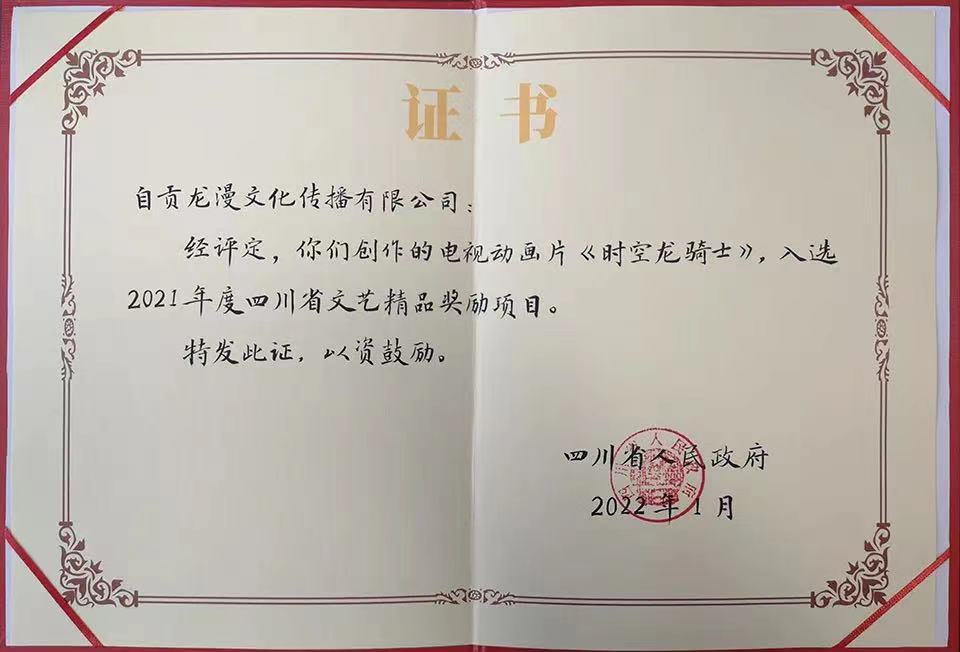 证书
自贡龙漫文化传播有限公司：
经评定，你们创作的电视动画片《时空龙骑士》，入选
2021年度四川省文艺精品奖励项目。
特发此证，以资鼓励。
四川省人民政府
2022年1月
四川省人民政府